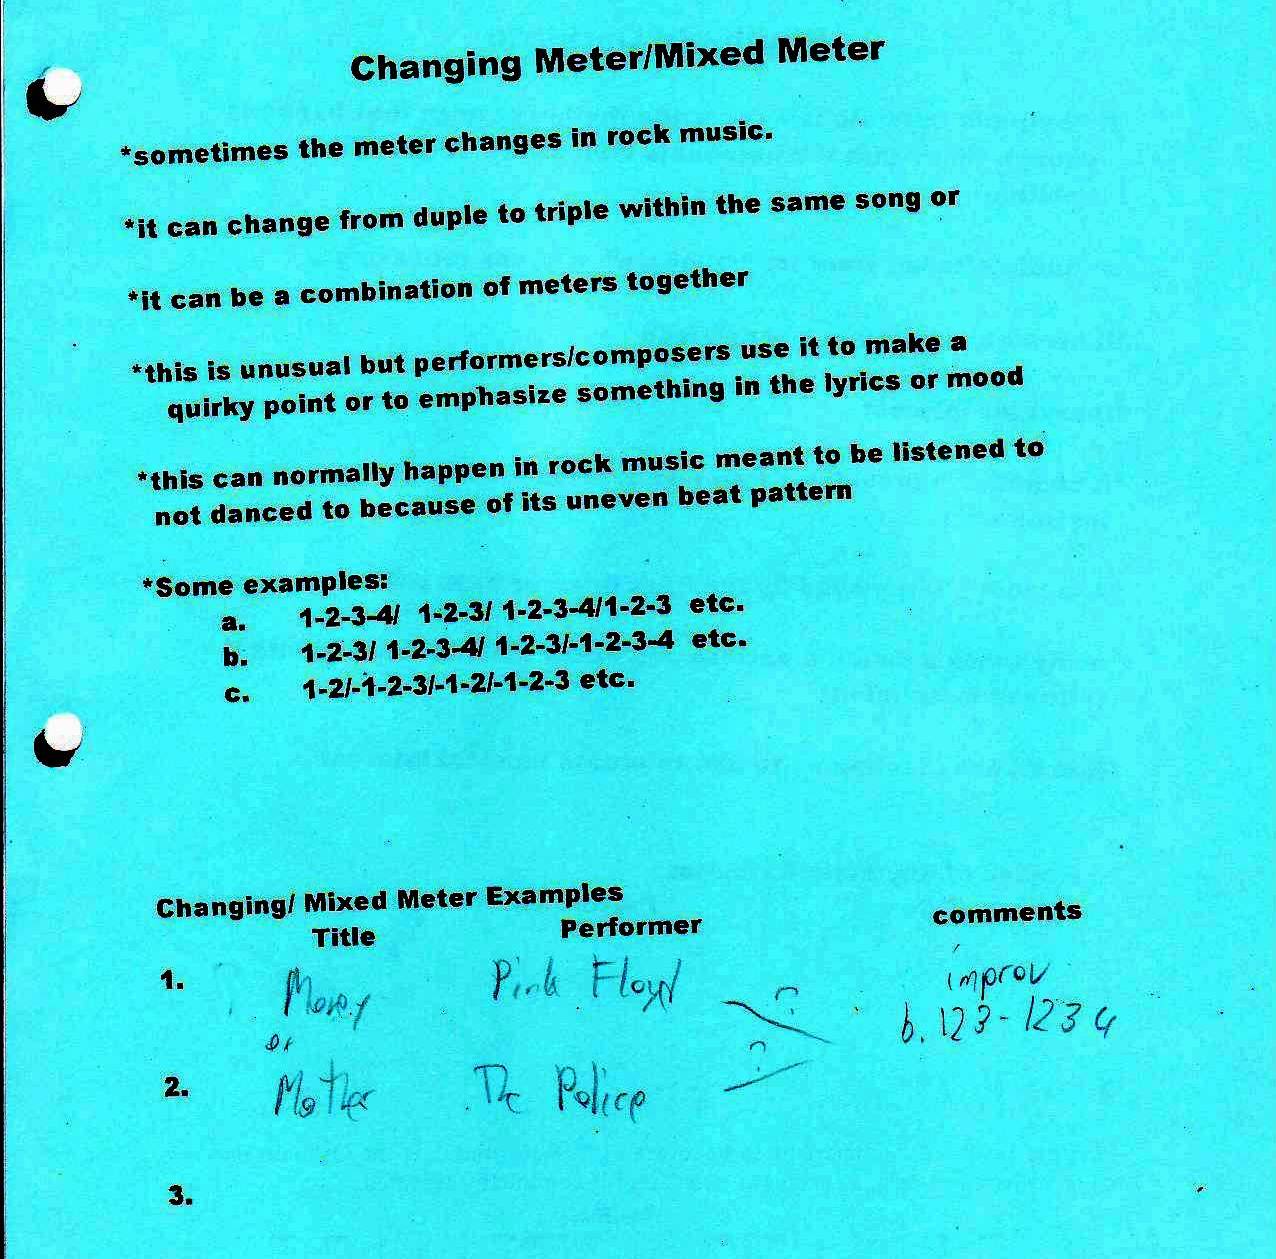 Changing Meter/Mixed Meter
*sometimes the meter changes in rock music.
*it can change from duple to triple within the same song or
*it can be a combination of meters together
*this is unusual but performers/composers use it to make a
quirky point or to emphasize something in the lyrics or mood
*this can normally happen in rock music meant to be listened to
not danced to because of its uneven beat pattern
*Some examples:
a. 1-2-3-4/ 1-2-3/ 1-2-3-4/1-2-3 etc.
b. 1-2-3/ 1-2-3-4/ 1-2-3/-1-2-3-4 etc.
c. 1-2/-1-2-3/-1-2/-1-2-3 etc.
Changing/ Mixed Meter Examples
Title Performer comments
1. Money Pink Floyd ? improv
or b. 123-1234
2. Mother The Police ?
3.